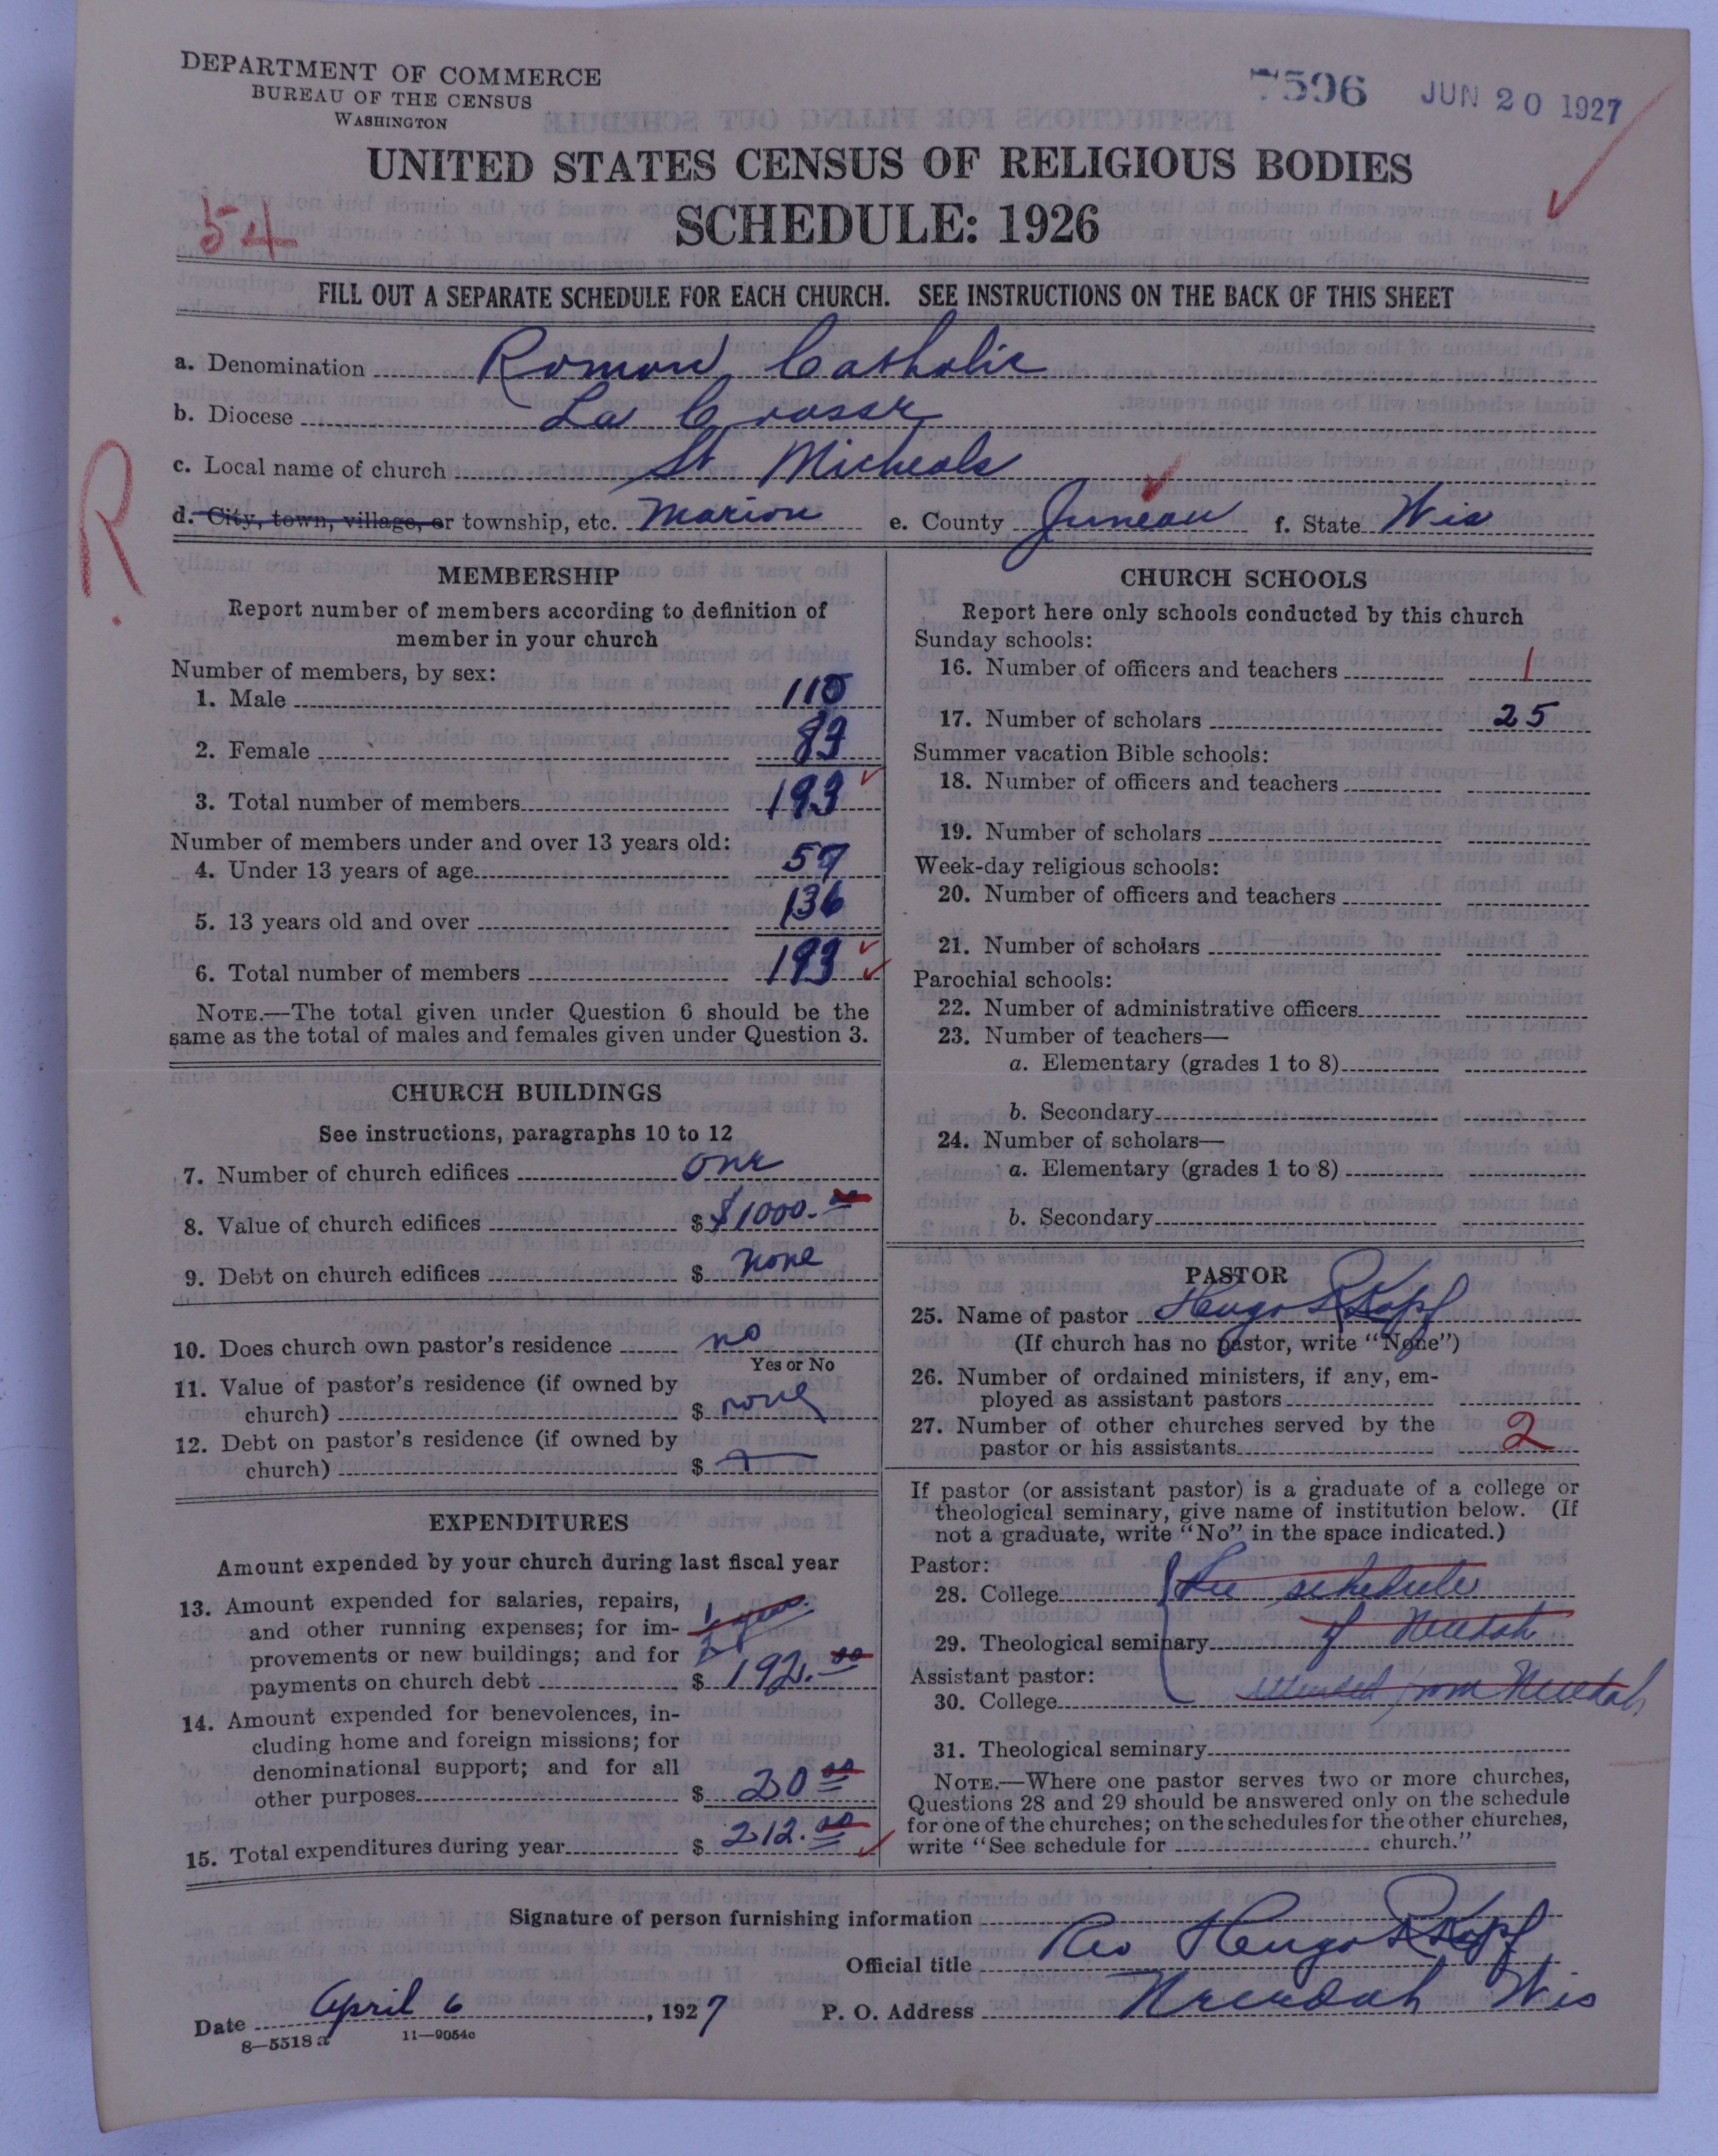 DEPARTMENT OF COMMERCE
BUREAU OF THE CENSUS
WASHINGTON
7596 JUN 20 1927
UNITED STATES CENSUS OF RELIGIOUS BODIES
54
SCHEDULE: 1926
FILL OUT A SEPARATE SCHEDULE FOR EACH CHURCH. SEE INSTRUCTIONS ON THE BACK OF THIS SHEET
a. Denomination Roman Catholic
b. Diocese La Crosse
c. Local name of church St Micheals
R
d. City, town, village, or township, etc. Marion e. County Juneau f. State Wis
MEMBERSHIP
Report number of members according to definition of
member in your church
Number of members, by sex:
1. Male 110
2. Female 83
3. Total number of members 193
Number of members under and over 13 years old:
4. Under 13 years of age 57
5. 13 years old and over 136
6. Total number of members 193
NOTE.—The total given under Question 6 should be the
same as the total of males and females given under Question 3.
CHURCH BUILDINGS
See instructions, paragraphs 10 to 12
7. Number of church edifices one
8. Value of church edifices $ $1000.00
9. Debt on church edifices $ none
10. Does church own pastor's residence no
Yes or No
11. Value of pastor's residence (if owned by
church) $ none
12. Debt on pastor's residence (if owned by
church) $
EXPENDITURES
Amount expended by your church during last fiscal year
13. Amount expended for salaries, repairs,
and other running expenses; for im- ½ year
provements or new buildings; and for
payments on church debt $ 192.00
14. Amount expended for benevolences, in-
cluding home and foreign missions; for
denominational support; and for all
other purposes $ 20.00
15. Total expenditures during year $ 212.00
CHURCH SCHOOLS
Report here only schools conducted by this church
Sunday schools:
16. Number of officers and teachers 1
17. Number of scholars 25
Summer vacation Bible schools:
18. Number of officers and teachers
19. Number of scholars
Week-day religious schools:
20. Number of officers and teachers
21. Number of scholars
Parochial schools:
22. Number of administrative officers
23. Number of teachers—
a. Elementary (grades 1 to 8)
b. Secondary
24. Number of scholars—
a. Elementary (grades 1 to 8)
b. Secondary
PASTOR
25. Name of pastor Hugo R Kopf
(If church has no pastor, write "None")
26. Number of ordained ministers, if any, em-
ployed as assistant pastors
27. Number of other churches served by the
pastor or his assistants 2
If pastor (or assistant pastor) is a graduate of a college or
theological seminary, give name of institution below. (If
not a graduate, write "No" in the space indicated.)
Pastor:
28. College See schedule
29. Theological seminary of Necedah
Assistant pastor:
30. College attended from Necedah
31. Theological seminary
NOTE.—Where one pastor serves two or more churches,
Questions 28 and 29 should be answered only on the schedule
for one of the churches; on the schedules for the other churches,
write "See schedule for church."
Signature of person furnishing information
Official title Rev Hugo R Kopf
Date April 6, 1927 P. O. Address Necedah Wis
8—5518 a 11—9054c